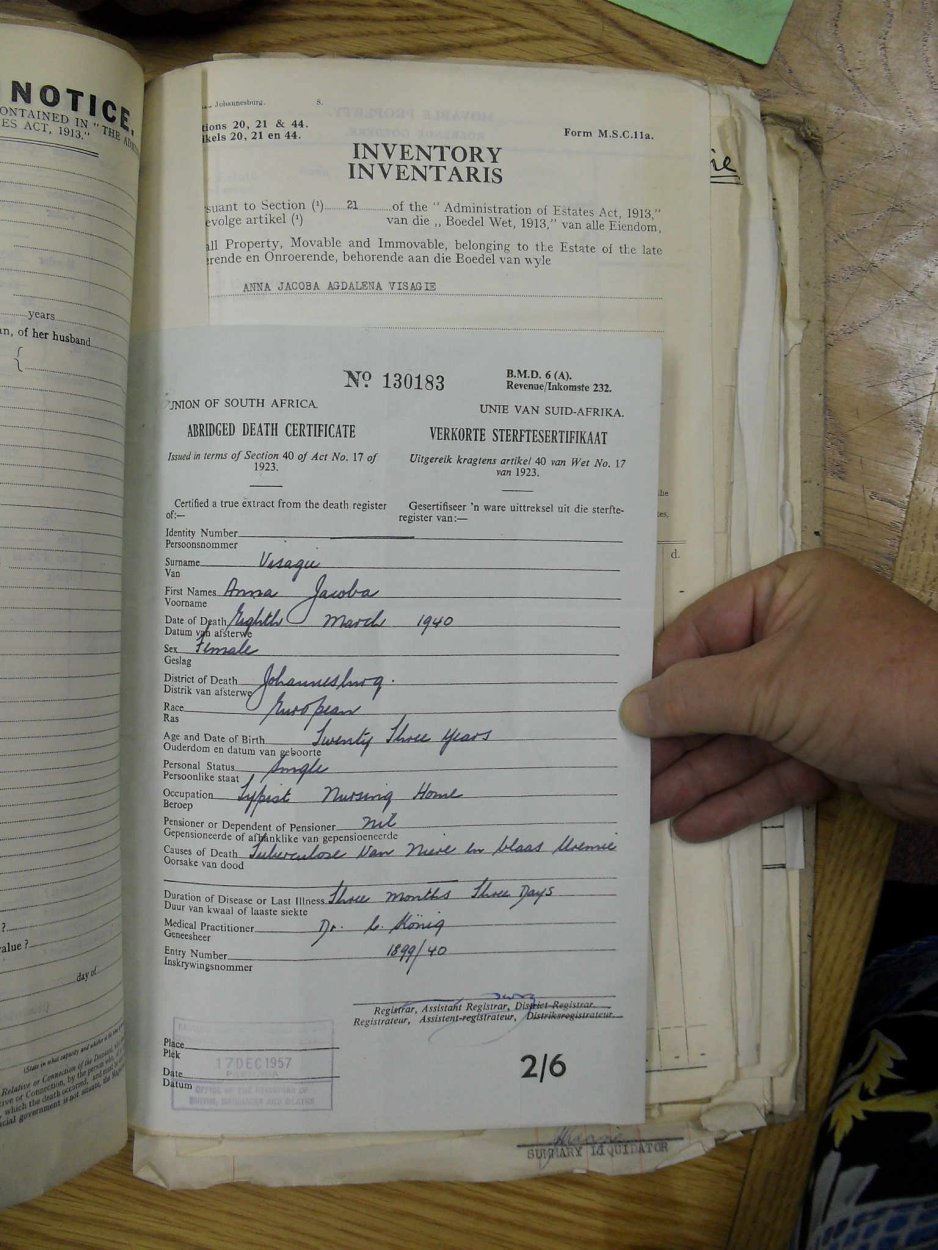 NOTICE.
CONTAINED IN "THE
ES ACT, 1913."
years
n, of her husband
?
alue ?
day of
Johannesburg. S.
tions 20, 21 & 44.
ikels 20, 21 en 44.
Form M.S.C.11a.
INVENTORY
INVENTARIS
suant to Section (¹) 21 of the " Administration of Estates Act, 1913,"
evolge artikel (¹) van die „ Boedel Wet, 1913," van alle Eiendom,
all Property, Movable and Immovable, belonging to the Estate of the late
erende en Onroerende, behorende aan die Boedel van wyle
ANNA JACOBA AGDALENA VISAGIE
ie
d.
No 130183
B.M.D. 6 (A).
Revenue/Inkomste 232.
UNION OF SOUTH AFRICA.
UNIE VAN SUID-AFRIKA.
ABRIDGED DEATH CERTIFICATE
VERKORTE STERFTESERTIFIKAAT
Issued in terms of Section 40 of Act No. 17 of
1923.
Uitgereik kragtens artikel 40 van Wet No. 17
van 1923.
Certified a true extract from the death register
of:—
Gesertifiseer 'n ware uittreksel uit die sterfte-
register van:—
Identity Number
Persoonsnommer
Surname Visagie
Van
First Names Anna Jacoba
Voorname
Date of Death Eighth March 1940
Datum van afsterwe
Sex Female
Geslag
District of Death Johannesburg.
Distrik van afsterwe
Race European
Ras
Age and Date of Birth Twenty Three Years
Ouderdom en datum van geboorte
Personal Status Single
Persoonlike staat
Occupation Typist Nursing Home
Beroep
Pensioner or Dependent of Pensioner nil
Gepensioneerde of afhanklike van gepensioeneerde
Causes of Death Tuberculose van niere en blaas Uremie
Oorsake van dood
Duration of Disease or Last Illness Three months Three Days
Duur van kwaal of laaste siekte
Medical Practitioner Dr. C. König
Geneesheer
Entry Number 1899/40
Inskrywingsnommer
Registrar, Assistant Registrar, District Registrar.
Registrateur, Assistent-registrateur, Distriksregistrateur.
Place
Plek
Date
Datum
17 DEC 1957
PRETORIA
OFFICE OF THE REGISTRAR OF
BIRTHS, MARRIAGES AND DEATHS
2/6
SUMMARY LIQUIDATOR